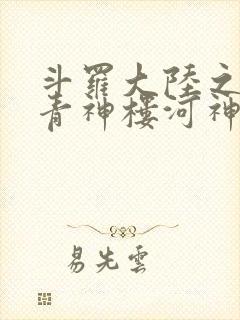 斗羅大陸之
青神樓河神
易先雲